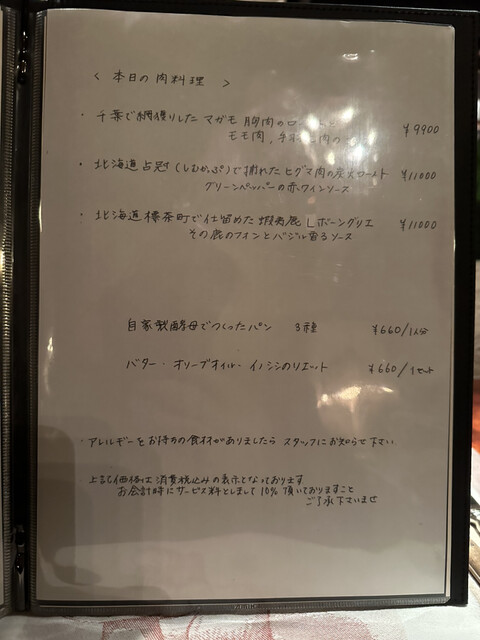 < 本日の肉料理 >
・千葉で網獲りしたマガモ 胸肉のロー
モモ肉、 肉の ¥9900
・北海道占冠（しむかっぷ）で捕れたヒグマ肉の炭火ロースト ¥11000
グリーンペッパーの赤ワインソース
・北海道標茶町で仕留めた蝦夷鹿 Lボーングリエ ¥11000
その鹿のフォンとバジル香るソース
自家製酵母でつくったパン 3種 ¥660/1人分
バター・オリーブオイル・イノシシのリエット ¥660/1セット
・アレルギーをお持ちの食材がありましたら スタッフにお知らせ下さい
上記価格は消費税込みの表示となっております
お会計時にサービス料としまして10%頂いておりますこと
ご了承下さいませ